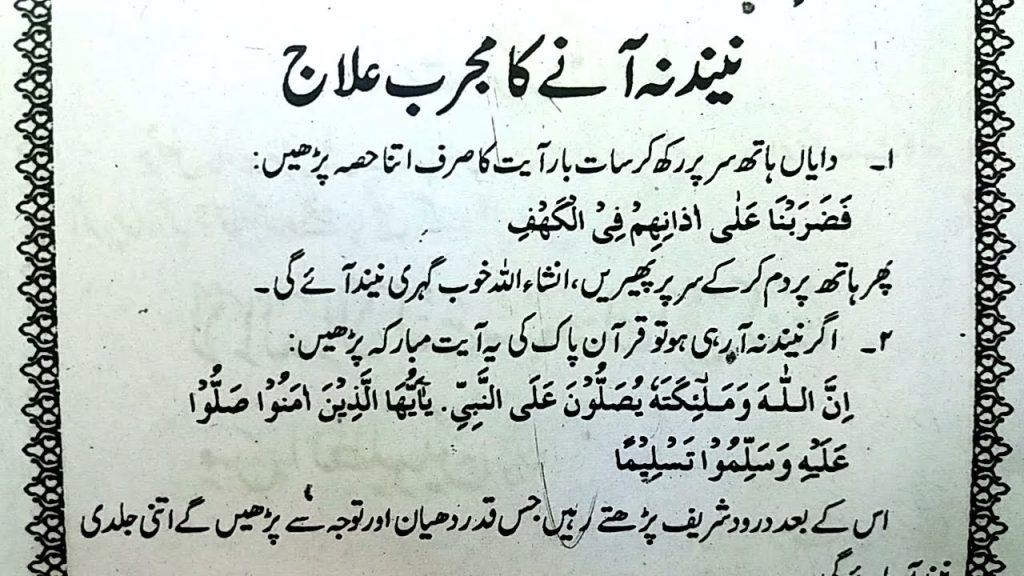 نیند نہ آنے کا مجرب علاج
۱۔ دایاں ہاتھ سر پر رکھ کر سات بار آیت کا صرف اتنا حصہ پڑھیں:
فَضَرَبْنَا عَلٰى اٰذَانِهِمْ فِى الْكَهْفِ
پھر ہاتھ پر دم کر کے سر پر پھیریں، انشاء اللہ خوب گہری نیند آئے گی۔
۲۔ اگر نیند نہ آ رہی ہو تو قرآن پاک کی یہ آیت مبارکہ پڑھیں:
اِنَّ اللّٰهَ وَمَلٰٓئِكَتَهٗ يُصَلُّوْنَ عَلَى النَّبِيِّ. يٰٓاَيُّهَا الَّذِيْنَ اٰمَنُوْا صَلُّوْا
عَلَيْهِ وَسَلِّمُوْا تَسْلِيْمًا
اس کے بعد درود شریف پڑھتے رہیں جس قدر دھیان اور توجہ سے پڑھیں گے اتنی جلدی